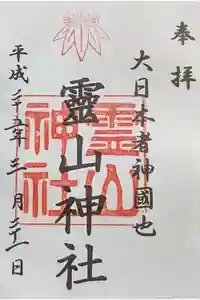 奉拝
大日本者神國也
靈山神社
靈山
神社
平成二十五年三月二十一日